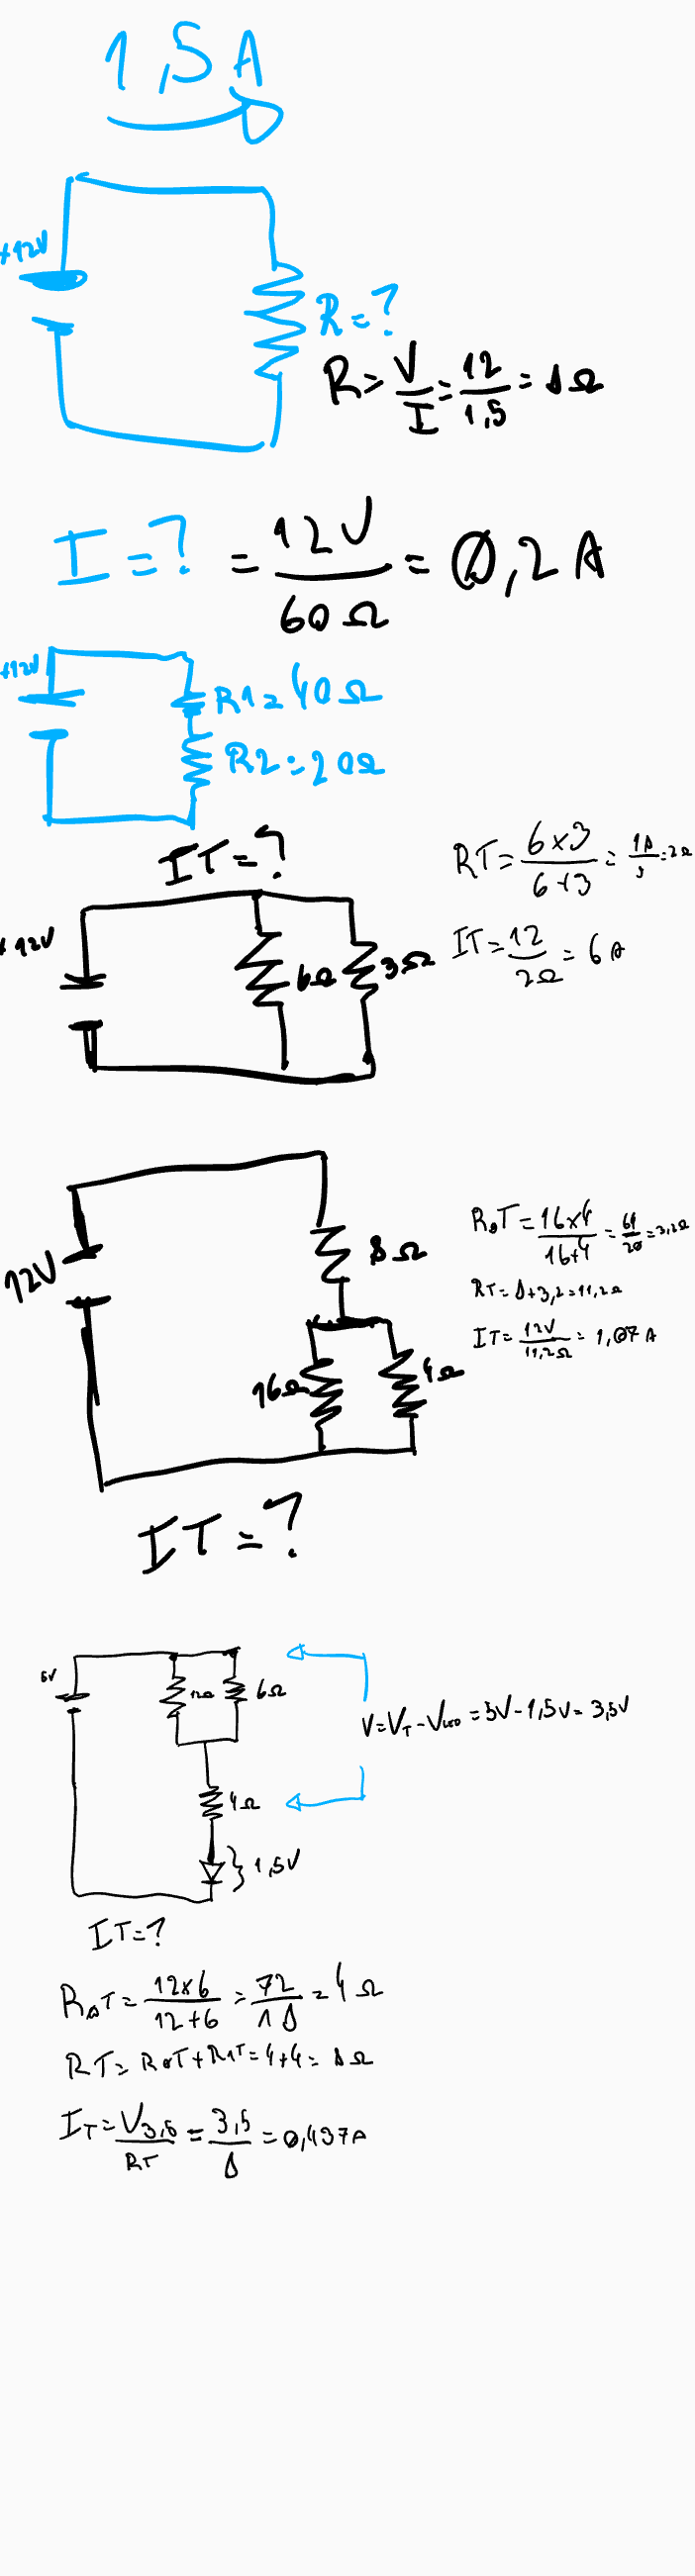 1,5A
+12V
R=?
R=V/I=12/1,5=8Ω
I=?=12V/60Ω=0,2A
+12V
R1=40Ω
R2=20Ω
IT=?
RT=6x3/6+3=18/9=2Ω
IT=12/2Ω=6A
+12V
6Ω
3Ω
R0T=16x4/16+4=64/20=3,2Ω
RT=8+3,2=11,2Ω
IT=12V/11,2Ω=1,07A
12V
8Ω
16Ω
4Ω
IT=?
5V
12Ω
6Ω
V=VT-VLED=5V-1,5V=3,5V
4Ω
1,5V
IT=?
R0T=12x6/12+6=72/18=4Ω
RT=R0T+R1T=4+4=8Ω
IT=V3,5/RT=3,5/8=0,437A